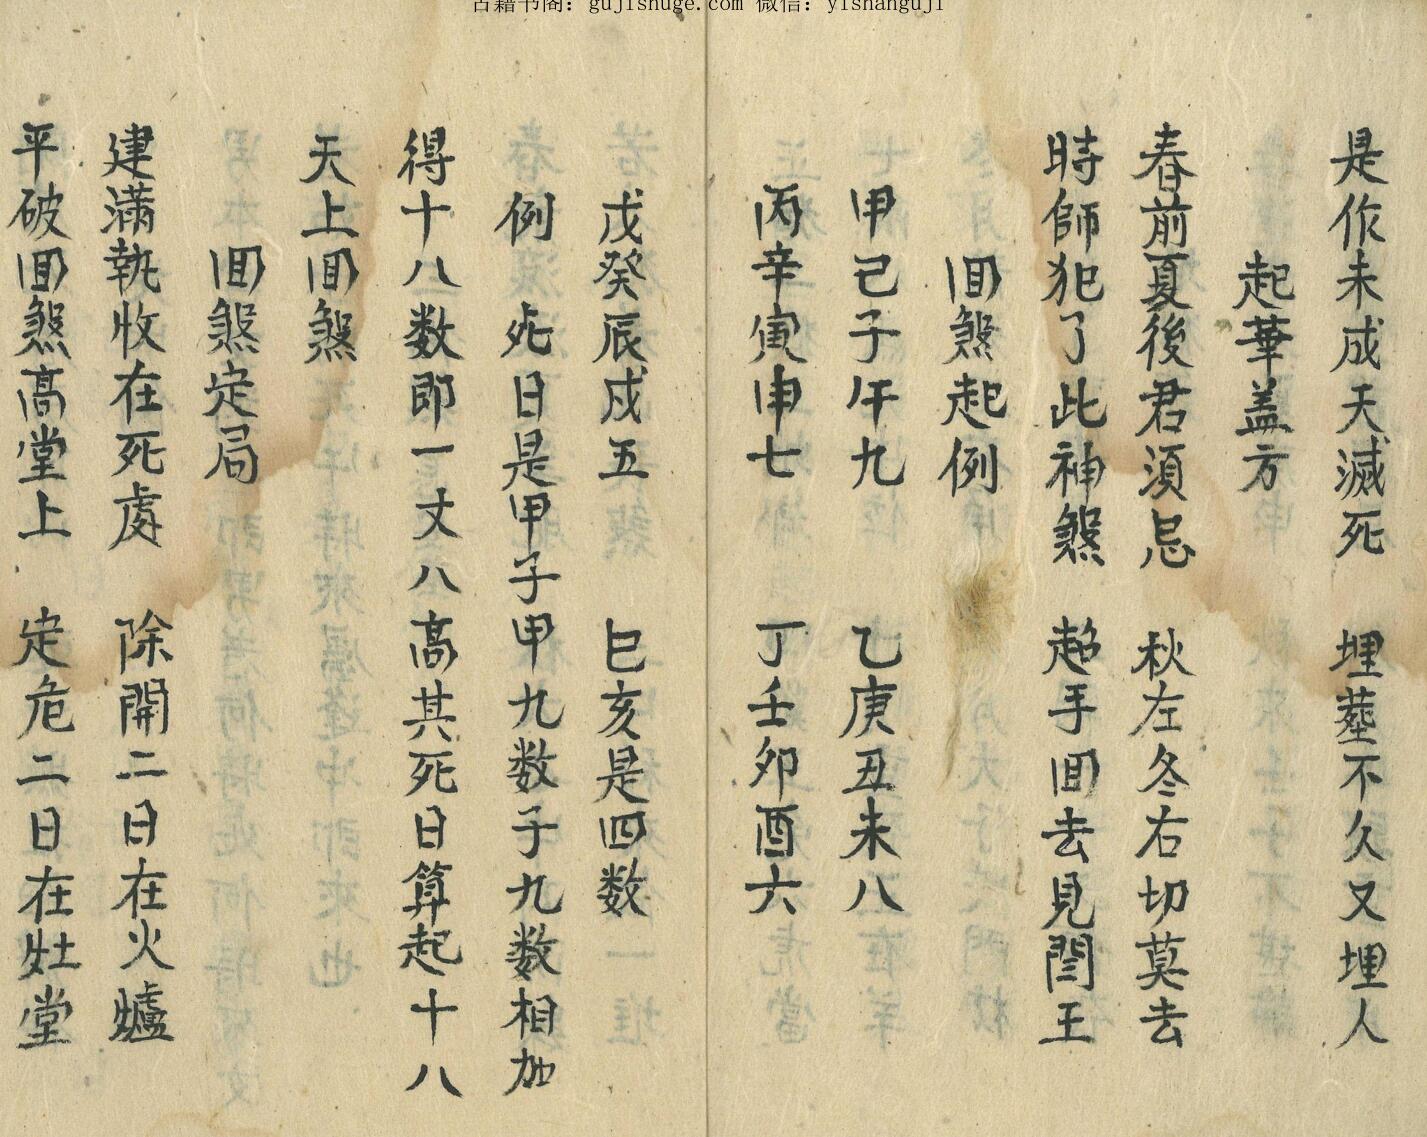 古籍书阁：gujishuge.com 微信：yishanguji
是作未成天滅死　埋塟不久又埋人
起華盖方
春前夏後君須忌　秋左冬右切莫去
時師犯了此神煞　起手回去見閻王
回煞起例
甲己子午九　乙庚丑未八
丙辛寅申七　丁壬卯酉六
戊癸辰戌五　巳亥是四数
例　死日是甲子甲九数子九数相加
得十八数即一丈八高其死日算起十八
天上回煞
回煞定局
建满執收在死處　除開二日在火爐
平破回煞高堂上　定危二日在灶堂